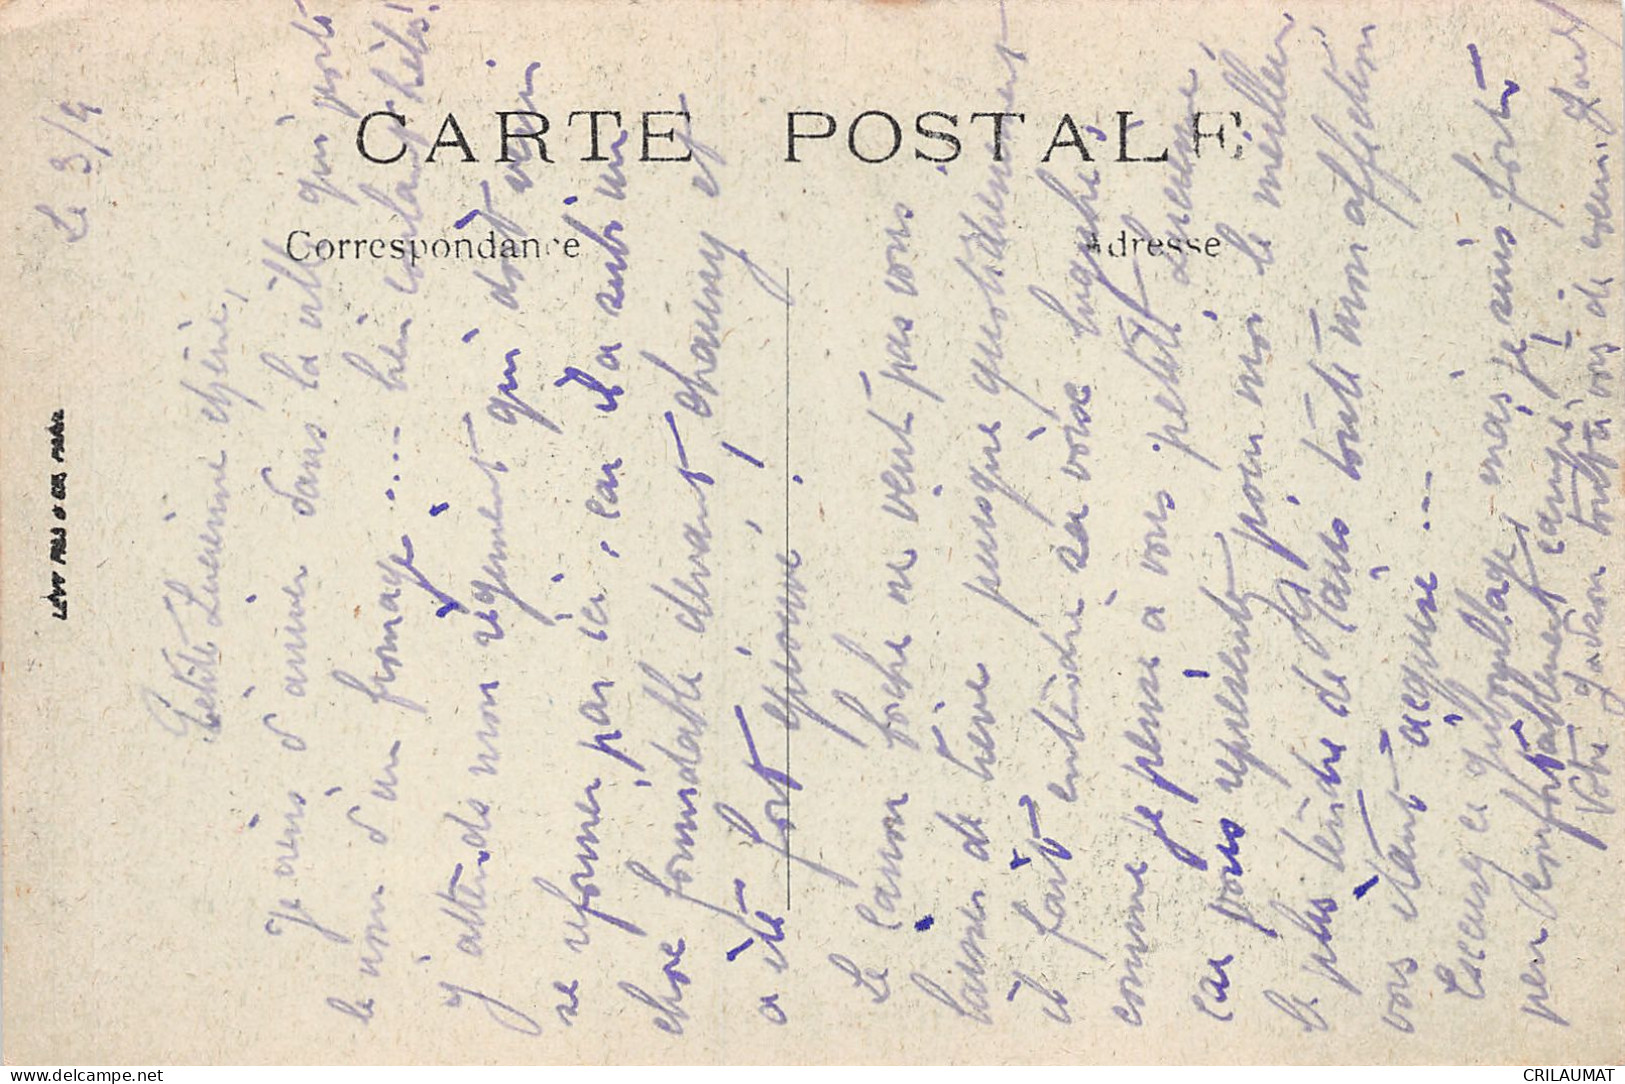 CARTE POSTALE
Correspondance
Adresse
LÉVY FILS & CIE PARIS
Le 3/4
Petite Lucienne chérie,
Je viens d'arriver dans la ville qui porte
le nom d'un fromage.... bien célèbre hélas!
J'attends mon régiment qui doit venir
se reformer par ici, car il a subi une
chose formidable devant Chauny et
a été fort éprouvé.
Le canon Boche ne vient pas vous
laisser de trève puisque quotidiennement
il fait entendre sa voix lugubre
comme je pense à vous petite Lucienne
car vous représentez pour moi le meilleur
le plus tendre de Paris toute mon affection
vous étant acquise...
Excusez ce gribouillage, mais je suis forte
peu confortablement campé!
Votre toute à vous de